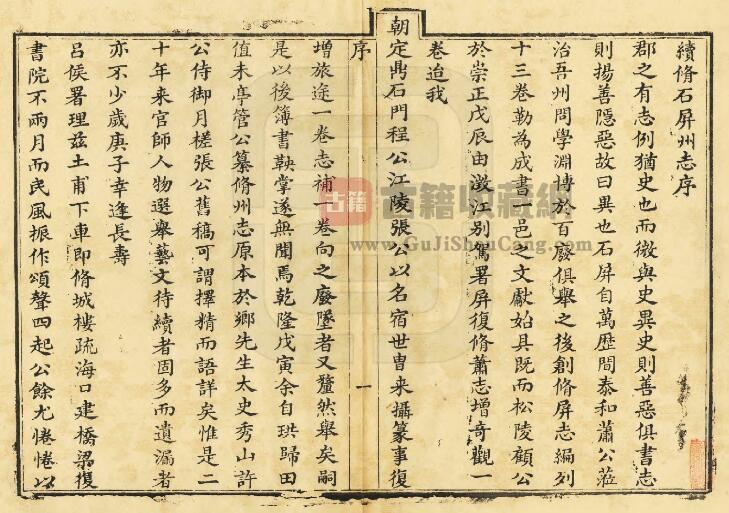 續脩石屏州志序
郡之有志例猶史也而微與史異史則善惡俱書志
則揚善隱惡故曰異也石屏自萬歷間泰和蕭公蒞
治吾州問學淵博於百廢俱舉之後創脩屏志編列
十三卷勒為成書一邑之文獻始具既而松陵顧公
於崇正戊辰由澂江別駕署屏復脩蕭志增奇觀一
卷迨我
朝定鼎石門程公江陵張公以名宿世胄来攝篆事復
序
一
增旅途一卷志補一卷向之廢墜者又釐然舉矣嗣
是以後簿書鞅掌遂無聞焉乾隆戊寅余自珙歸田
值未亭管公纂脩州志原本於鄉先生太史秀山許
公侍御月槎張公舊稿可謂擇精而語詳矣惟是二
十年来官師人物選舉藝文待續者固多而遺漏者
亦不少歲庚子幸逢長壽
呂侯署理茲土甫下車即脩城樓疏海口建橋梁復
書院不兩月而民風振作頌聲四起公餘尤惓惓以
古籍
古籍收藏網
www.GuJiShouCang.com